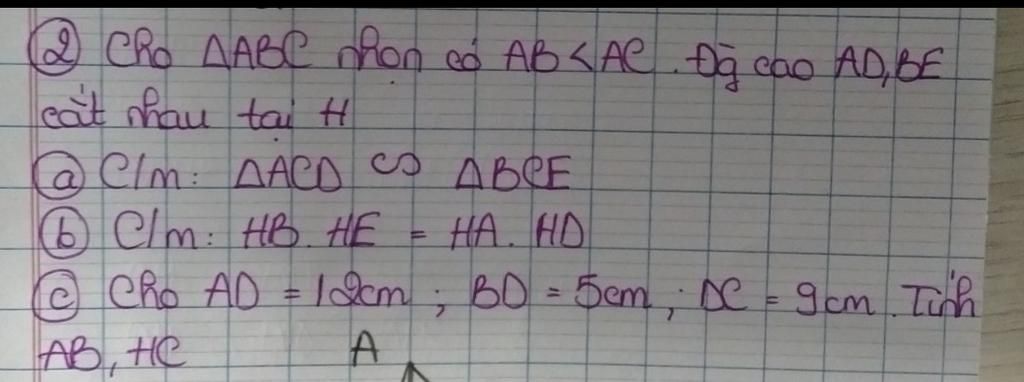 ② Cho ΔABC nhọn có AB < AC. Đg cao AD, BE
cắt nhau tại H
ⓐ C/m: ΔACD ∽ ΔBCE
ⓑ C/m: HB. HE = HA. HD
ⓒ Cho AD = 12cm ; BD = 5cm ; DC = 9cm. Tính
AB, HC
A